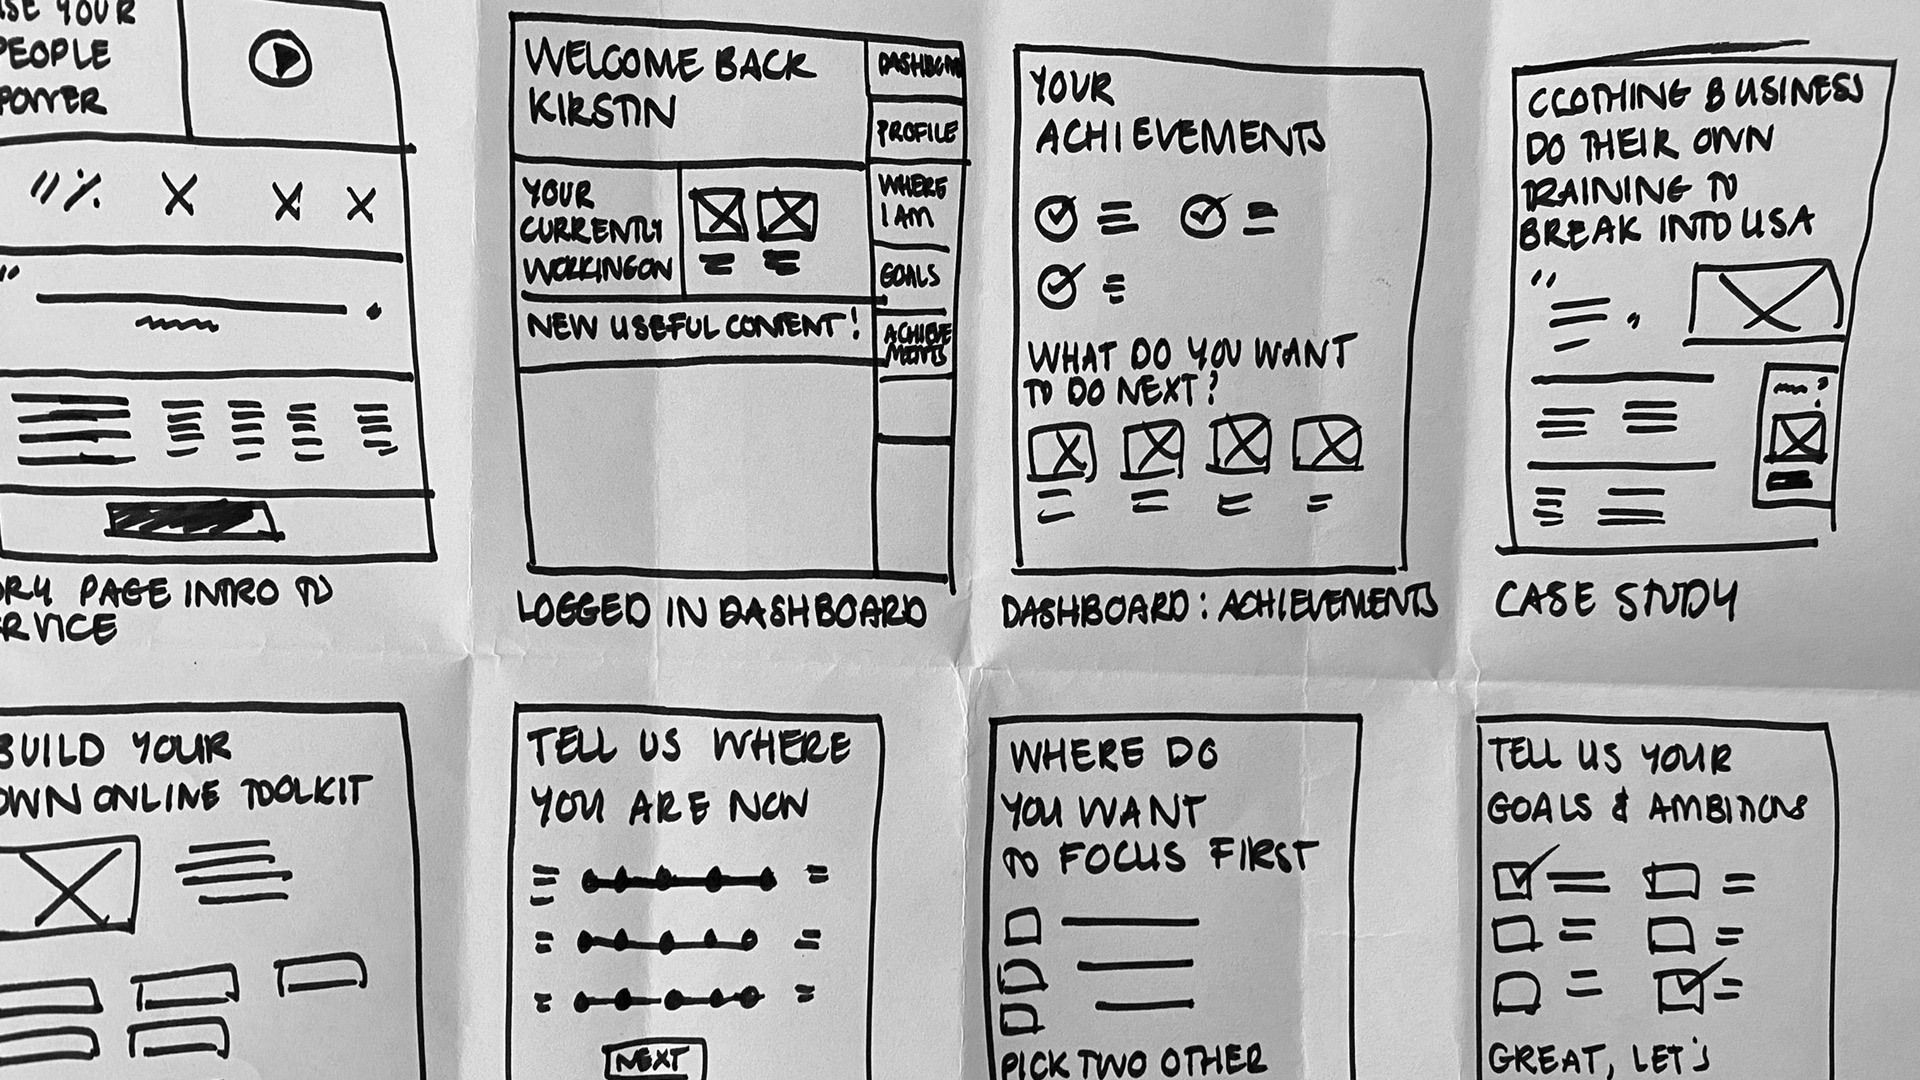 USE YOUR
PEOPLE
POWER
WELCOME BACK
KIRSTIN
YOUR
CURRENTLY
WORKING ON
NEW USEFUL CONTENT!
PROFILE
WHERE
I AM
GOALS
ACHIEVE
MENTS
YOUR
ACHIEVEMENTS
WHAT DO YOU WANT
TO DO NEXT?
CLOTHING BUSINESS
DO THEIR OWN
TRAINING TO
BREAK INTO USA
PAGE INTRO TO
LOGGED IN DASHBOARD
DASHBOARD: ACHIEVEMENTS
CASE STUDY
BUILD YOUR
OWN ONLINE TOOLKIT
TELL US WHERE
YOU ARE NOW
NEXT
WHERE DO
YOU WANT
TO FOCUS FIRST
PICK TWO OTHER
TELL US YOUR
GOALS & AMBITIONS
GREAT, LET'S